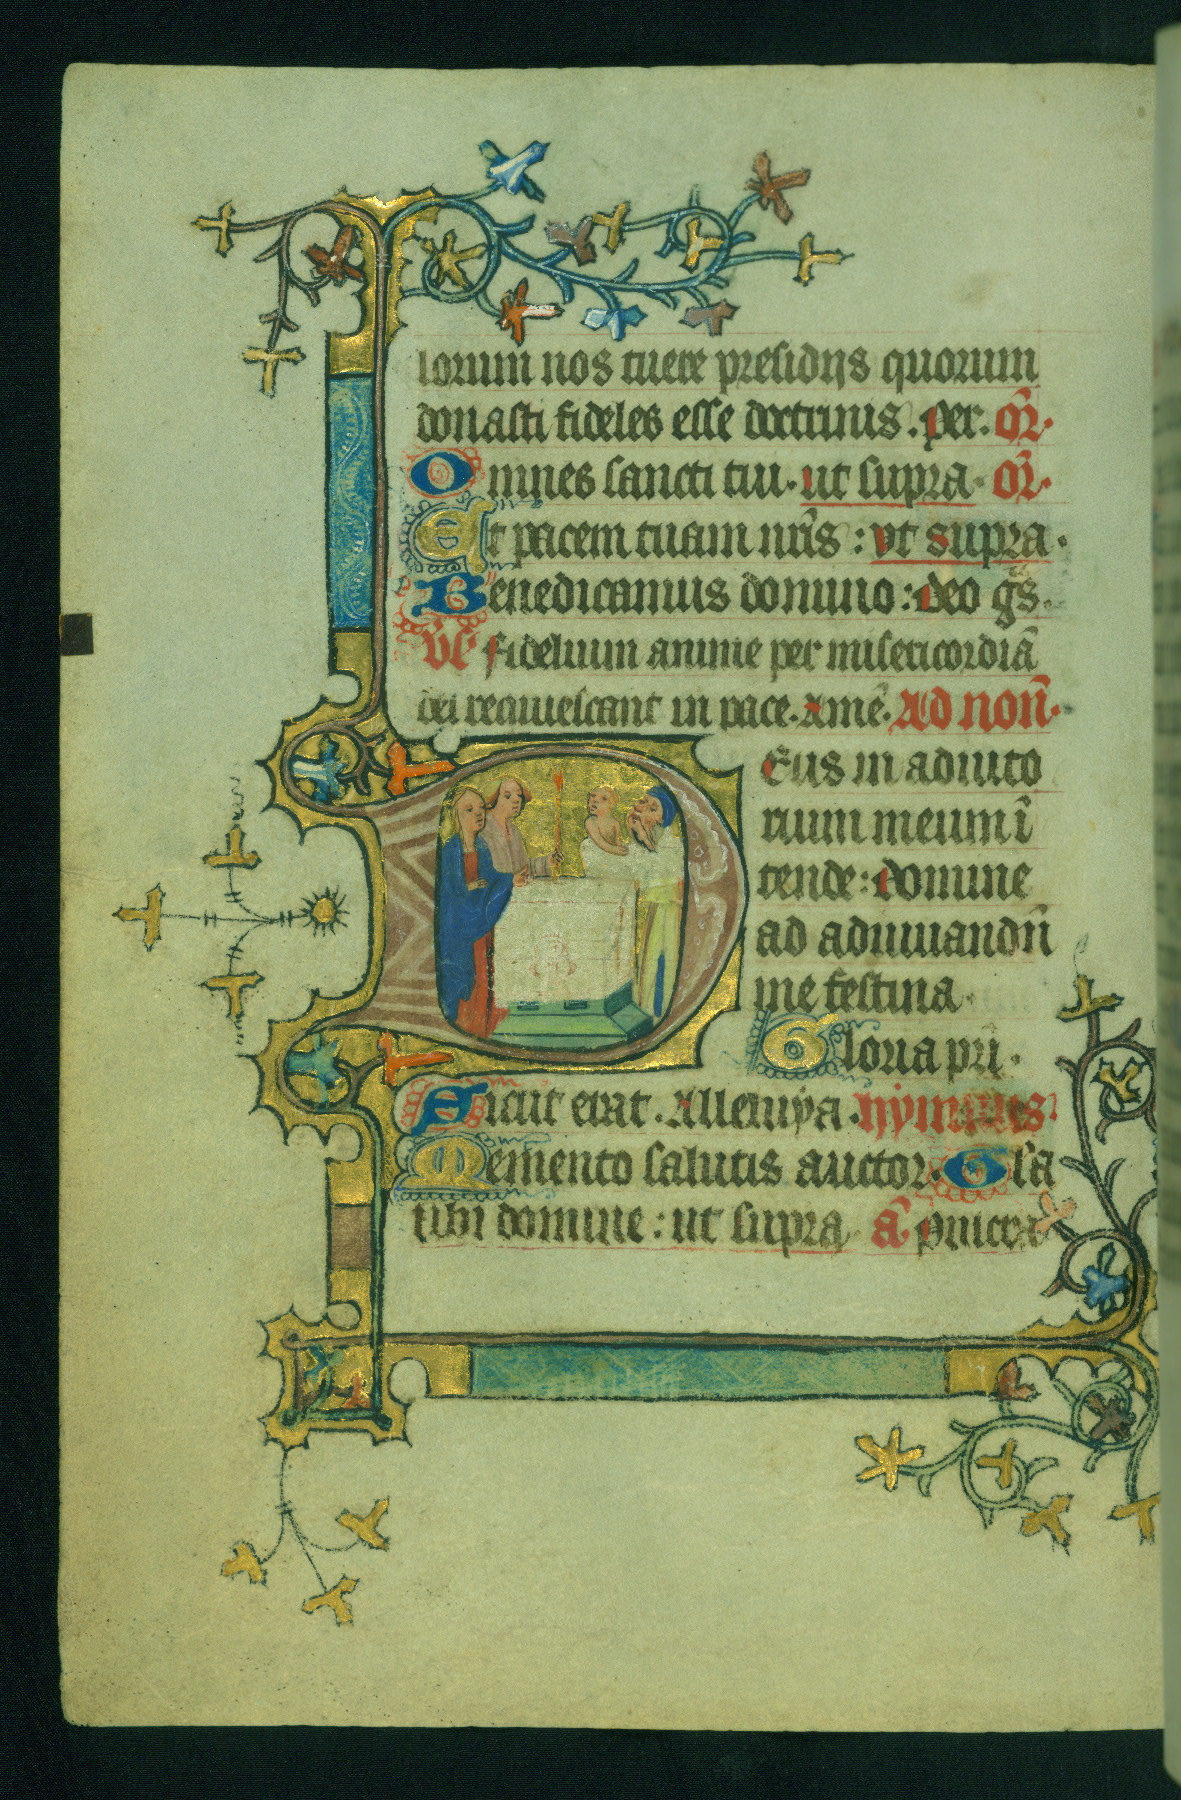 lorum nos tuere presidijs quorum
donasti fideles esse doctrinis. per. Or̄.
Omnes sancti tui. ut supra. Or̄.
Et pacem tuam nr̄is: vt supra.
Benedicamus domino: deo gr̄s.
Vl̄ fidelium anime per misericordiā
dei requiescant in pace. Amē. Ad non̄.
Deus in adiuto
rium meum ī
tende: domine
ad adiuuandū
me festina
Gloria pr̄i.
Sicut erat. Alleluya. hympnus.
Memento salutis auctor. Glā
tibi domine: ut supra ā pulcra